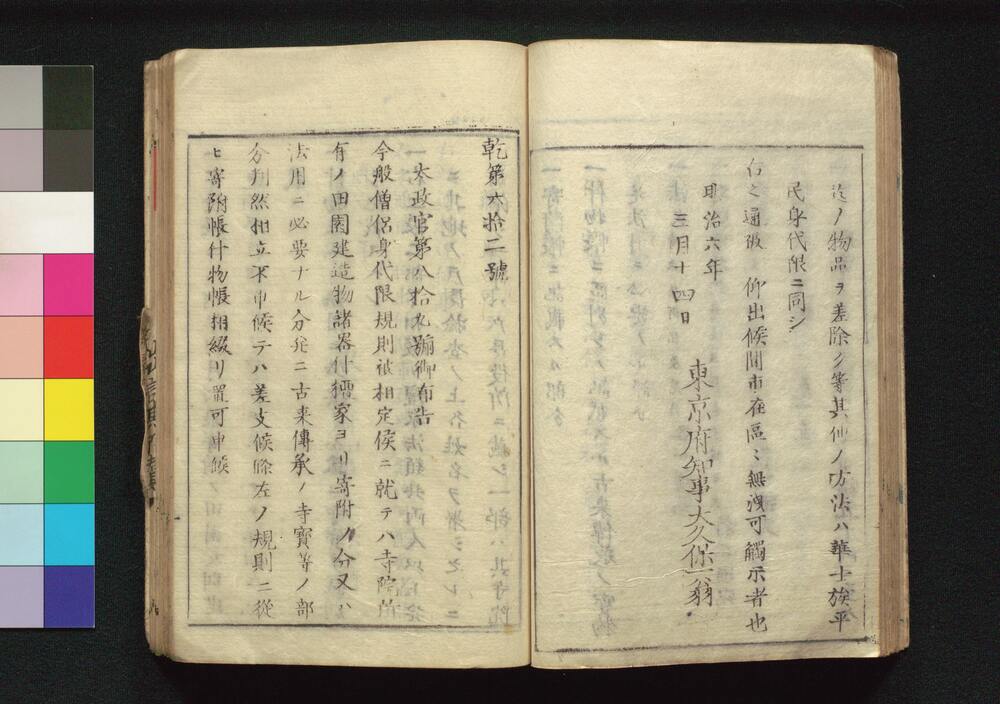 飛ノ物品ヲ差除ク等其他ノ方法ハ華士族平
民身代限ニ同シ
右之通被 仰出候間市在區々無洩可觸示者也
明治六年
三月十四日
東京府知事大久保一翁
乾第六拾二號
一太政官第八拾九號御布告
今般僧侶身代限規則被相定候ニ就テハ寺院所
有ノ田園建造物諸器什檀家ヨリ寄附ノ分又ハ
法用ニ必要ナル分竝ニ古来傳承ノ寺寶等ノ部
分判然相立不申候テハ差支候條左ノ規則ニ從
ヒ寄附帳什物帳相綴リ置可申候